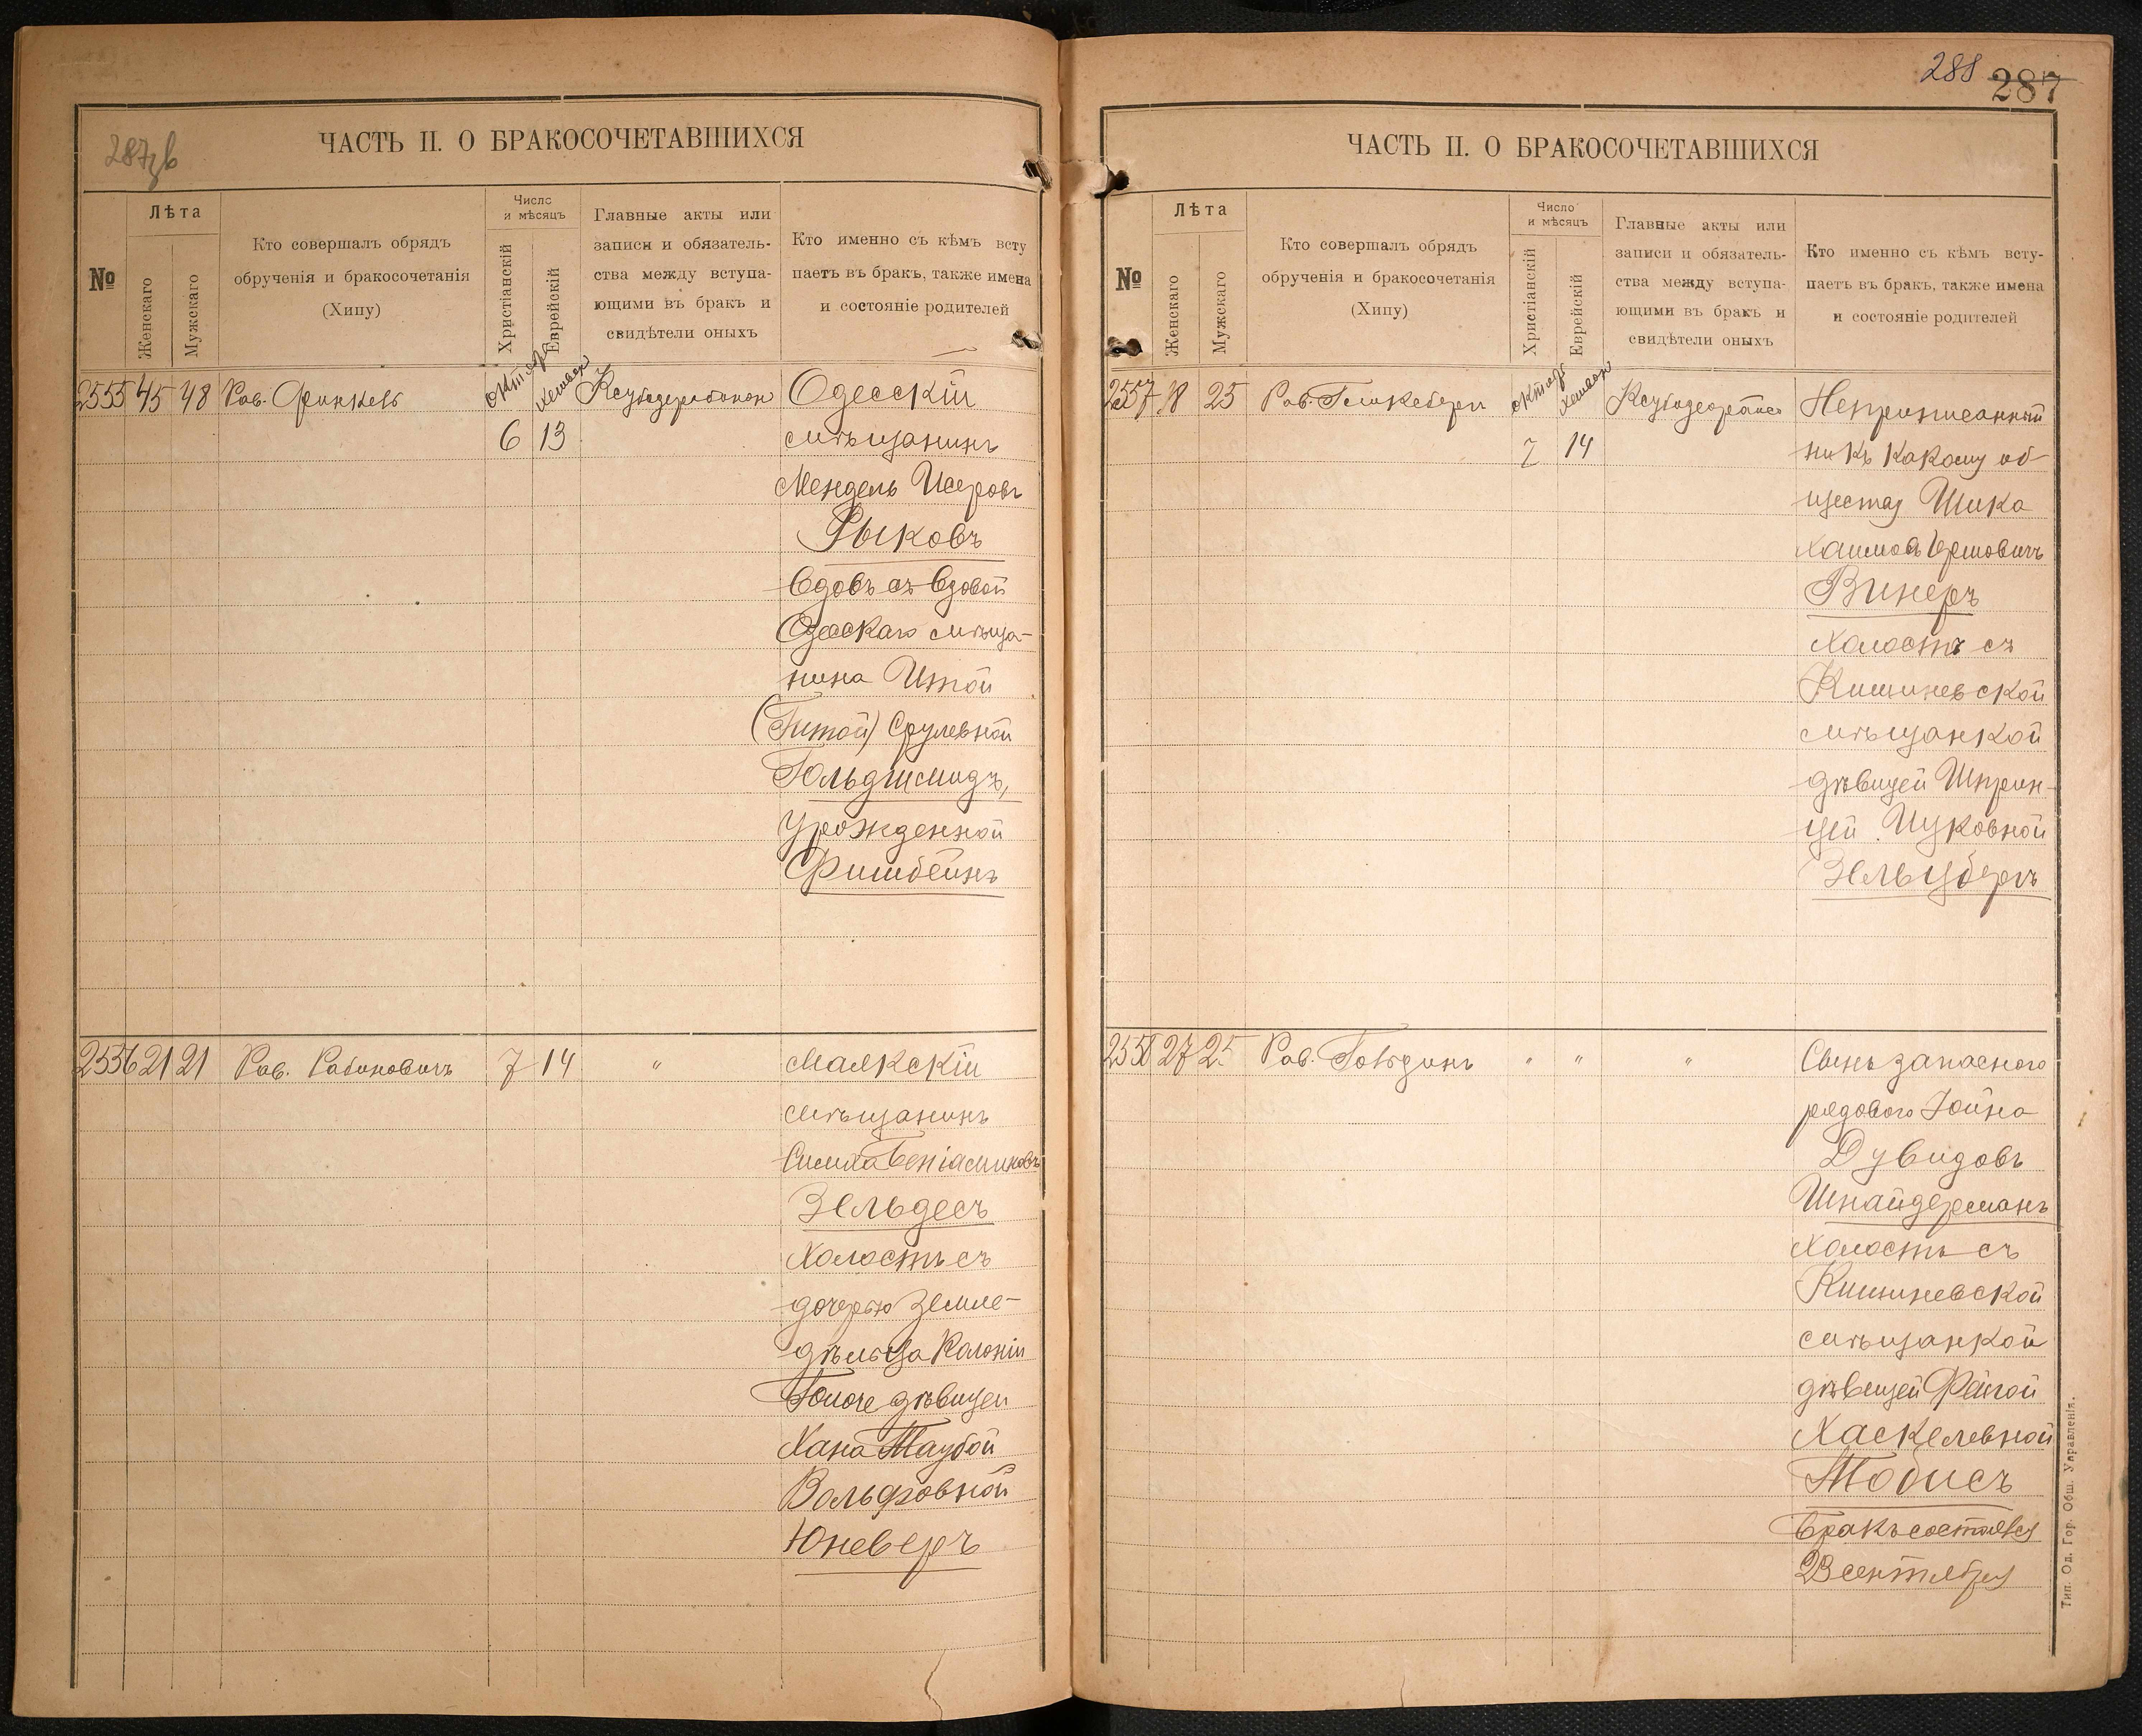 287зв
ЧАСТЬ II. О БРАКОСОЧЕТАВШИХСЯ
№
Лѣта
Женскаго
Мужскаго
Кто совершалъ обрядъ
обрученія и бракосочетанія
(Хипу)
Число
и мѣсяцъ
Христіанскій
Еврейскій
Главные акты или
записи и обязатель-
ства между вступа-
ющими въ бракъ и
свидѣтели оныхъ
Кто именно съ кѣмъ всту
паетъ въ бракъ, также имена
и состояніе родителей
2555 45 48 Рав. Финкель
6 13
Одесскій
мѣщанинъ
Мендель Исеровъ
Рыковъ
Вдовъ съ Вдовой
Одесскаго мѣща-
нина Итой
(Гитой) Срулевной
Гольдшмидъ,
урожденной
Фишбейнъ
2556 21 21 Рав. Рабиновичъ 7 14 "
Маякскій
мѣщанинъ
Симха Беніаминовъ
Зельдесъ
Холостъ съ
дочерью Земле-
дѣльца Колоніи
дѣвицей
Хана Таубой
Вольфовной
Юневеръ
288 287
ЧАСТЬ II. О БРАКОСОЧЕТАВШИХСЯ
№
Лѣта
Женскаго
Мужскаго
Кто совершалъ обрядъ
обрученія и бракосочетанія
(Хипу)
Число
и мѣсяцъ
Христіанскій
Еврейскій
Главные акты или
записи и обязатель-
ства между вступа-
ющими въ бракъ и
свидѣтели оныхъ
Кто именно съ кѣмъ всту-
паетъ въ бракъ, также имена
и состояніе родителей
2557 18 25 Рав.
7 14
Неприписанный
ни къ какому об-
ществу Шика
Хаимовъ Гершовичъ
Винеръ
Холостъ съ
Кишиневской
мѣщанкой
дѣвицей Шприн-
цей Ицковной
Зельцбергъ
2558 27 25 Рав. " " "
Сынъ запасного
рядового Іойна
Дувидовъ
Шнайдерманъ
Холостъ съ
Кишиневской
мѣщанкой
дѣвицей Фейгой
Хаскелевной
Тобисъ
Бракъ состоялся
23 сентября
Тип. Од. Гор. Общ. Управленія.